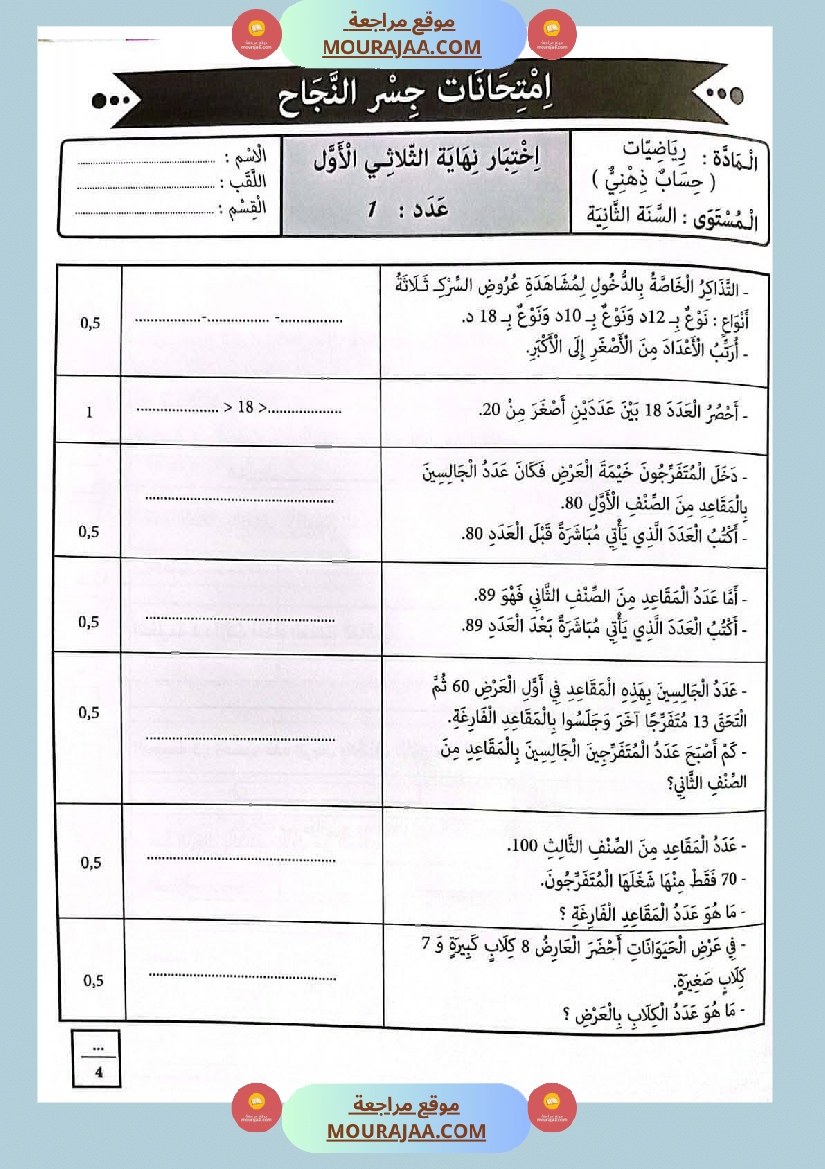 موقع مراجعة
MOURAJAA.COM
اِمْتِحَانَات جِسْر النَّجَاح
الْمَادَّة : رِيَاضِيّات
( حِسَابٌ ذِهْنِيٌّ )
الْمُسْتَوَى : السَّنَة الثَّانِيَة
اِخْتِبَار نِهَايَة الثّلاثِي الْأَوَّل
عَدَد : 1
الْاسْم : ......................
اللَّقَب : ......................
الْقِسْم : ......................
- التَّذَاكِرُ الْخَاصَّةُ بِالدُّخُولِ لِمُشَاهَدَةِ عُرُوضِ السِّرْكِ ثَلَاثَةُ
أَنْوَاعٍ : نَوْعٌ بِـ 12د وَنَوْعٌ بِـ 10د وَنَوْعٌ بِـ 18 د.
- أُرَتِّبُ الْأَعْدَادَ مِنَ الْأَصْغَرِ إِلَى الْأَكْبَرِ.
................-................-................
0,5
- أَحْصُرُ الْعَدَدَ 18 بَيْنَ عَدَدَيْنِ أَصْغَرَ مِنْ 20.
.................... > 18 >...................
1
- دَخَلَ الْمُتَفَرِّجُونَ خَيْمَةَ الْعَرْضِ فَكَانَ عَدَدُ الْجَالِسِينَ
بِالْمَقَاعِدِ مِنَ الصِّنْفِ الْأَوَّلِ 80.
- أَكْتُبُ الْعَدَدَ الَّذِي يَأْتِي مُبَاشَرَةً قَبْلَ الْعَدَدِ 80.
................................................
0,5
- أَمَّا عَدَدُ الْمَقَاعِدِ مِنَ الصِّنْفِ الثَّانِي فَهْوَ 89.
- أَكْتُبُ الْعَدَدَ الَّذِي يَأْتِي مُبَاشَرَةً بَعْدَ الْعَدَدِ 89.
................................................
0,5
- عَدَدُ الْجَالِسِينَ بِهَذِهِ الْمَقَاعِدِ فِي أَوَّلِ الْعَرْضِ 60 ثُمَّ
الْتَحَقَ 13 مُتَفَرِّجًا آخَرَ وَجَلَسُوا بِالْمَقَاعِدِ الْفَارِغَةِ.
- كَمْ أَصْبَحَ عَدَدُ الْمُتَفَرِّجِينَ الْجَالِسِينَ بِالْمَقَاعِدِ مِنَ
الصِّنْفِ الثَّانِي؟
................................................
0,5
- عَدَدُ الْمَقَاعِدِ مِنَ الصِّنْفِ الثَّالِثِ 100.
- 70 فَقَطْ مِنْهَا شَغَلَهَا الْمُتَفَرِّجُونَ.
- مَا هُوَ عَدَدُ الْمَقَاعِدِ الْفَارِغَةِ ؟
................................................
0,5
- فِي عَرْضِ الْحَيَوَانَاتِ أَحْضَرَ الْعَارِضُ 8 كِلَابٍ كَبِيرَةٍ وَ 7
كِلَابٍ صَغِيرَةٍ.
- مَا هُوَ عَدَدُ الْكِلَابِ بِالْعَرْضِ ؟
................................................
0,5
...
4
موقع مراجعة
MOURAJAA.COM